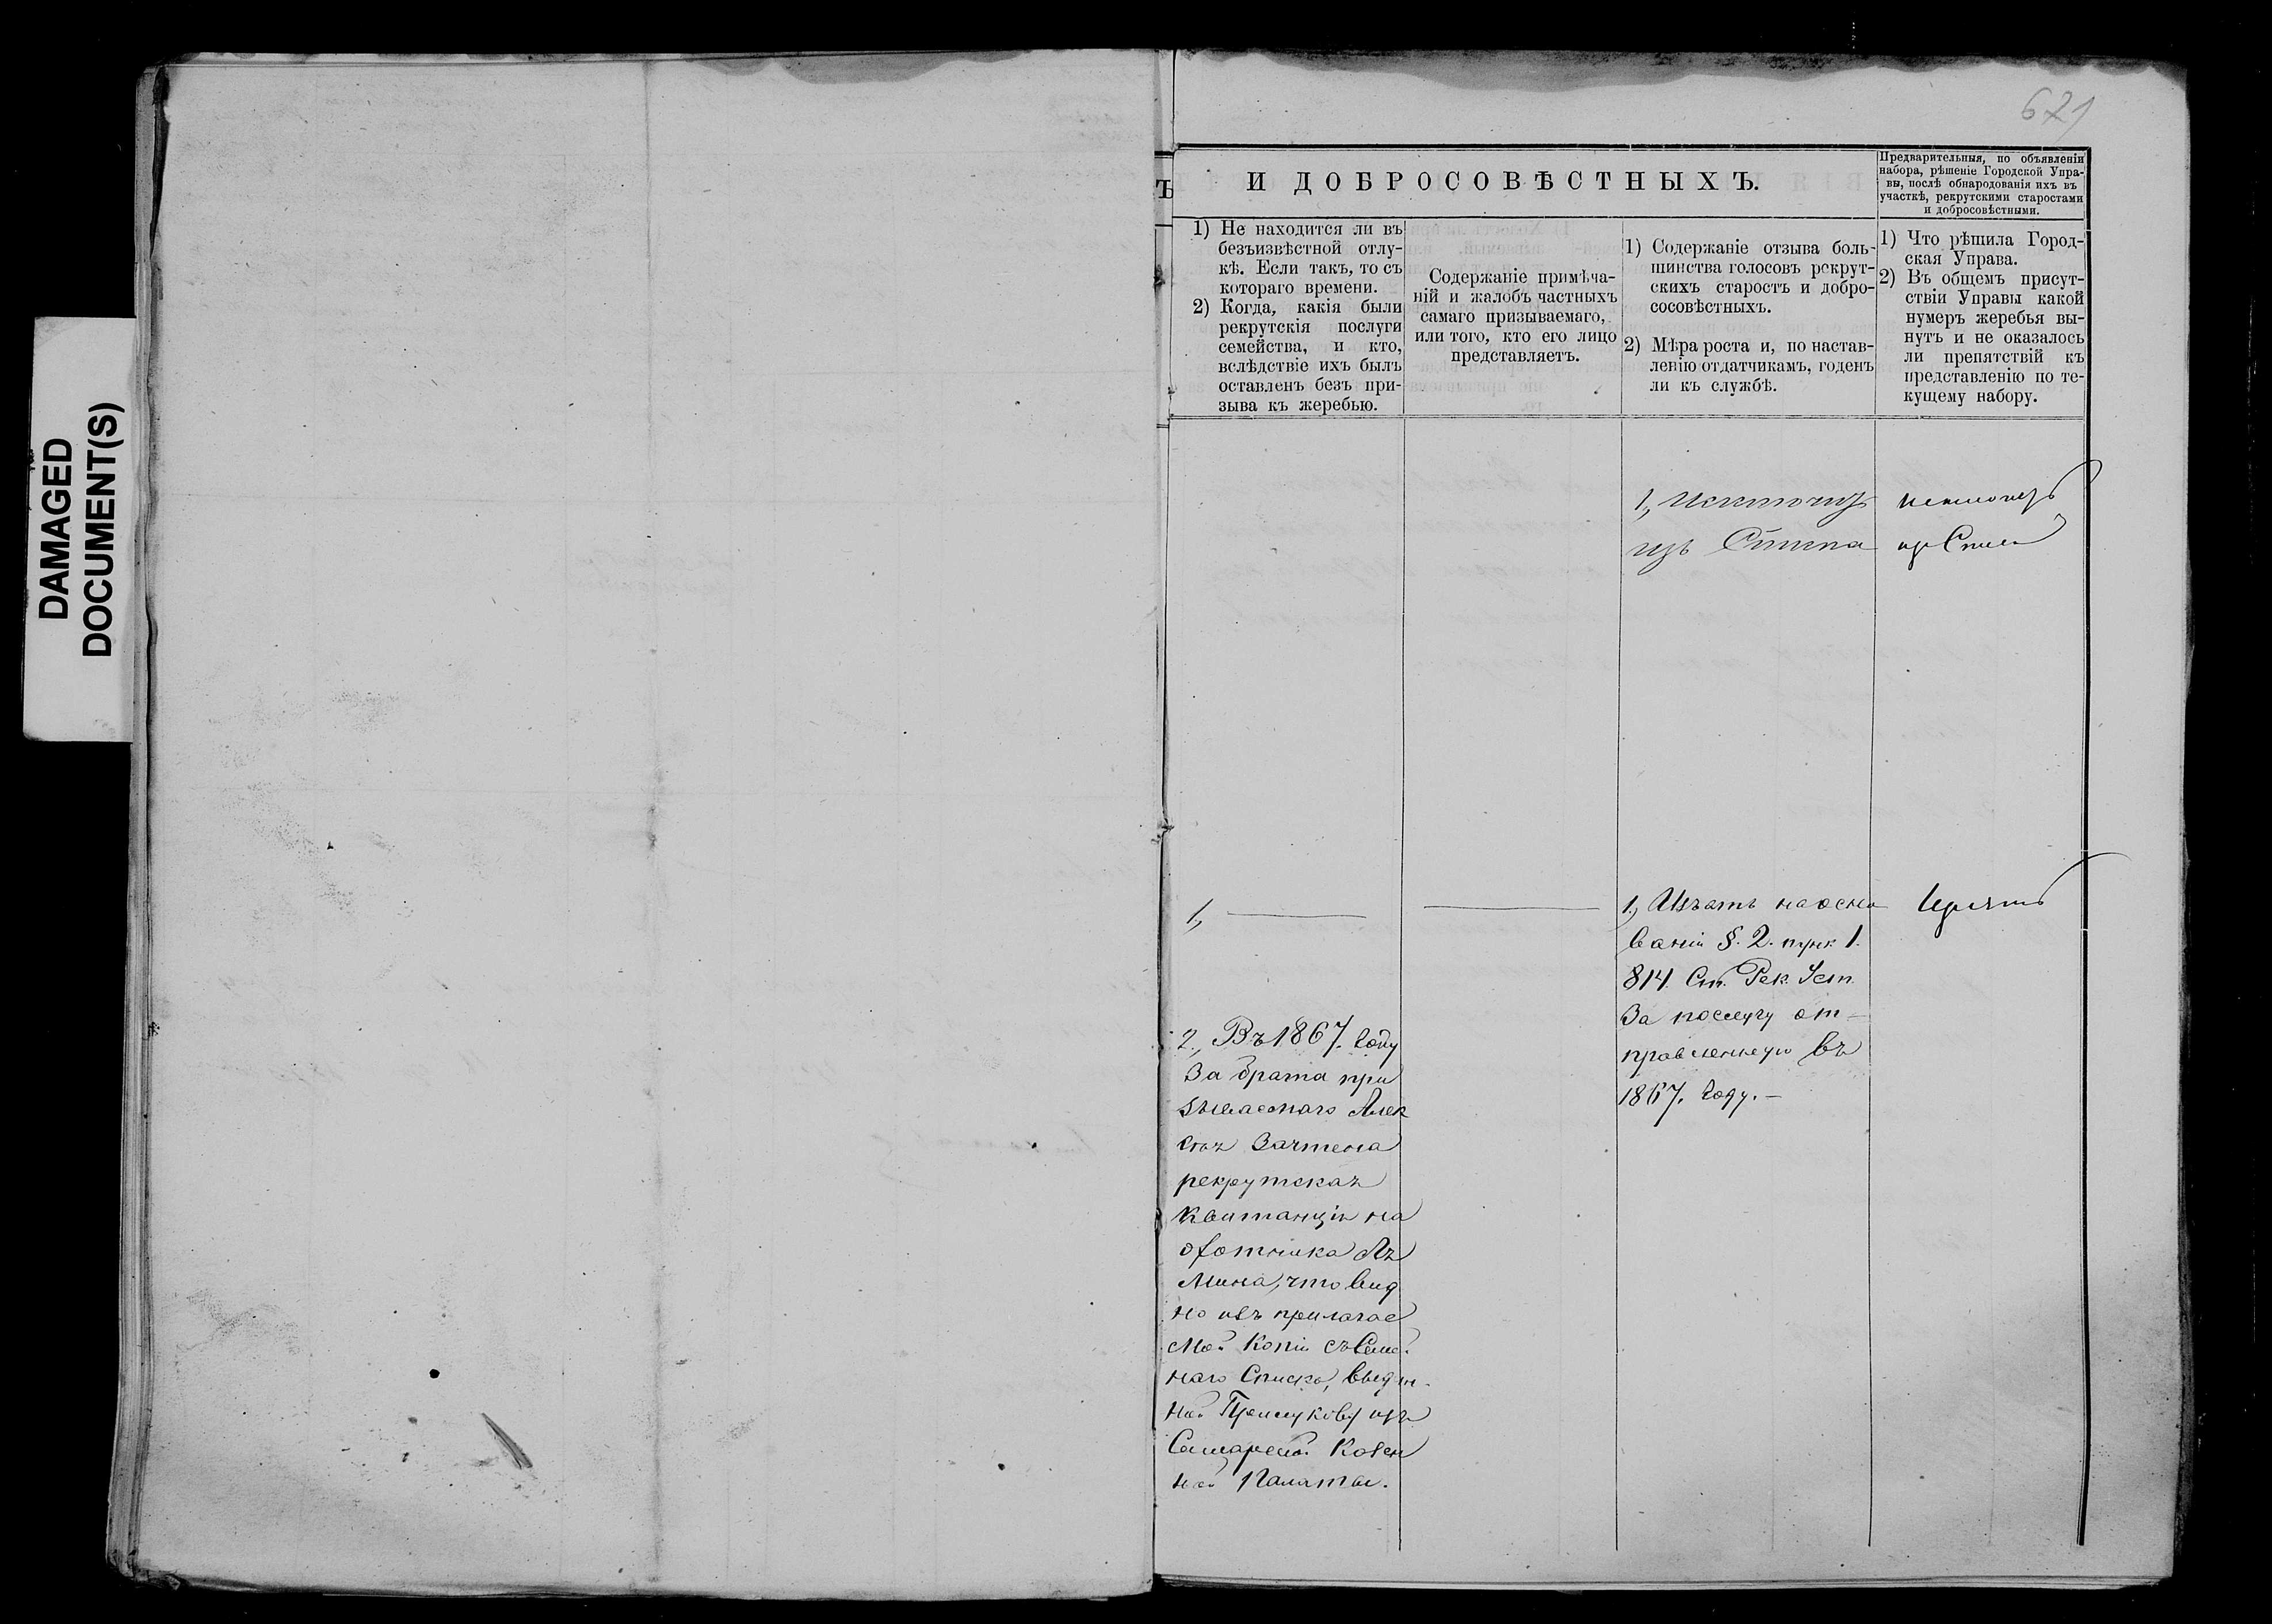 DAMAGED
DOCUMENT(S)
621
Ѣ
И ДОБРОСОВѢСТНЫХЪ.
Предварительныя, по объявленіи
набора, рѣшеніе Городской Упра-
вы, послѣ обнародованія ихъ въ
участкѣ, рекрутскими старостами
и добросовѣстными.
1) Не находится ли въ
безъизвѣстной отлу-
кѣ. Если такъ, то съ
котораго времени.
2) Когда, какія были
рекрутскія послуги
семейства, и кто,
вслѣдствіе ихъ былъ
оставленъ безъ при-
зыва къ жеребью.
Содержаніе примѣча-
ній и жалобъ частныхъ
самаго призываемаго,
или того, кто его лицо
представляетъ.
1) Содержаніе отзыва боль-
шинства голосовъ рекрут-
скихъ старостъ и добро-
сосовѣстныхъ.
2) Мѣра роста и, по настав-
ленію отдатчикамъ, годенъ
ли къ службѣ.
1) Что рѣшила Город-
ская Управа.
2) Въ общемъ присут-
ствіи Управы какой
нумеръ жеребья вы-
нутъ и не оказалось
ли препятствій къ
представленію по те-
кущему набору.
1,
изъ Списка
1,
2, Въ 1867. Году
За брата при
зываемаго Алек
сѣя Зачтена
рекрутская
Квитанція на
охотника Ля
мина, что вид
но изъ прилагае
мой Копіи съ
наго Списка,
ной изъ
Самарской Козен
ной Палаты.
1, Изъать на осно
ваніи §. 2. пунк 1.
814. Ст. Рек. Уст.
За послугу от-
правленную въ
1867. Году. -
Изъять